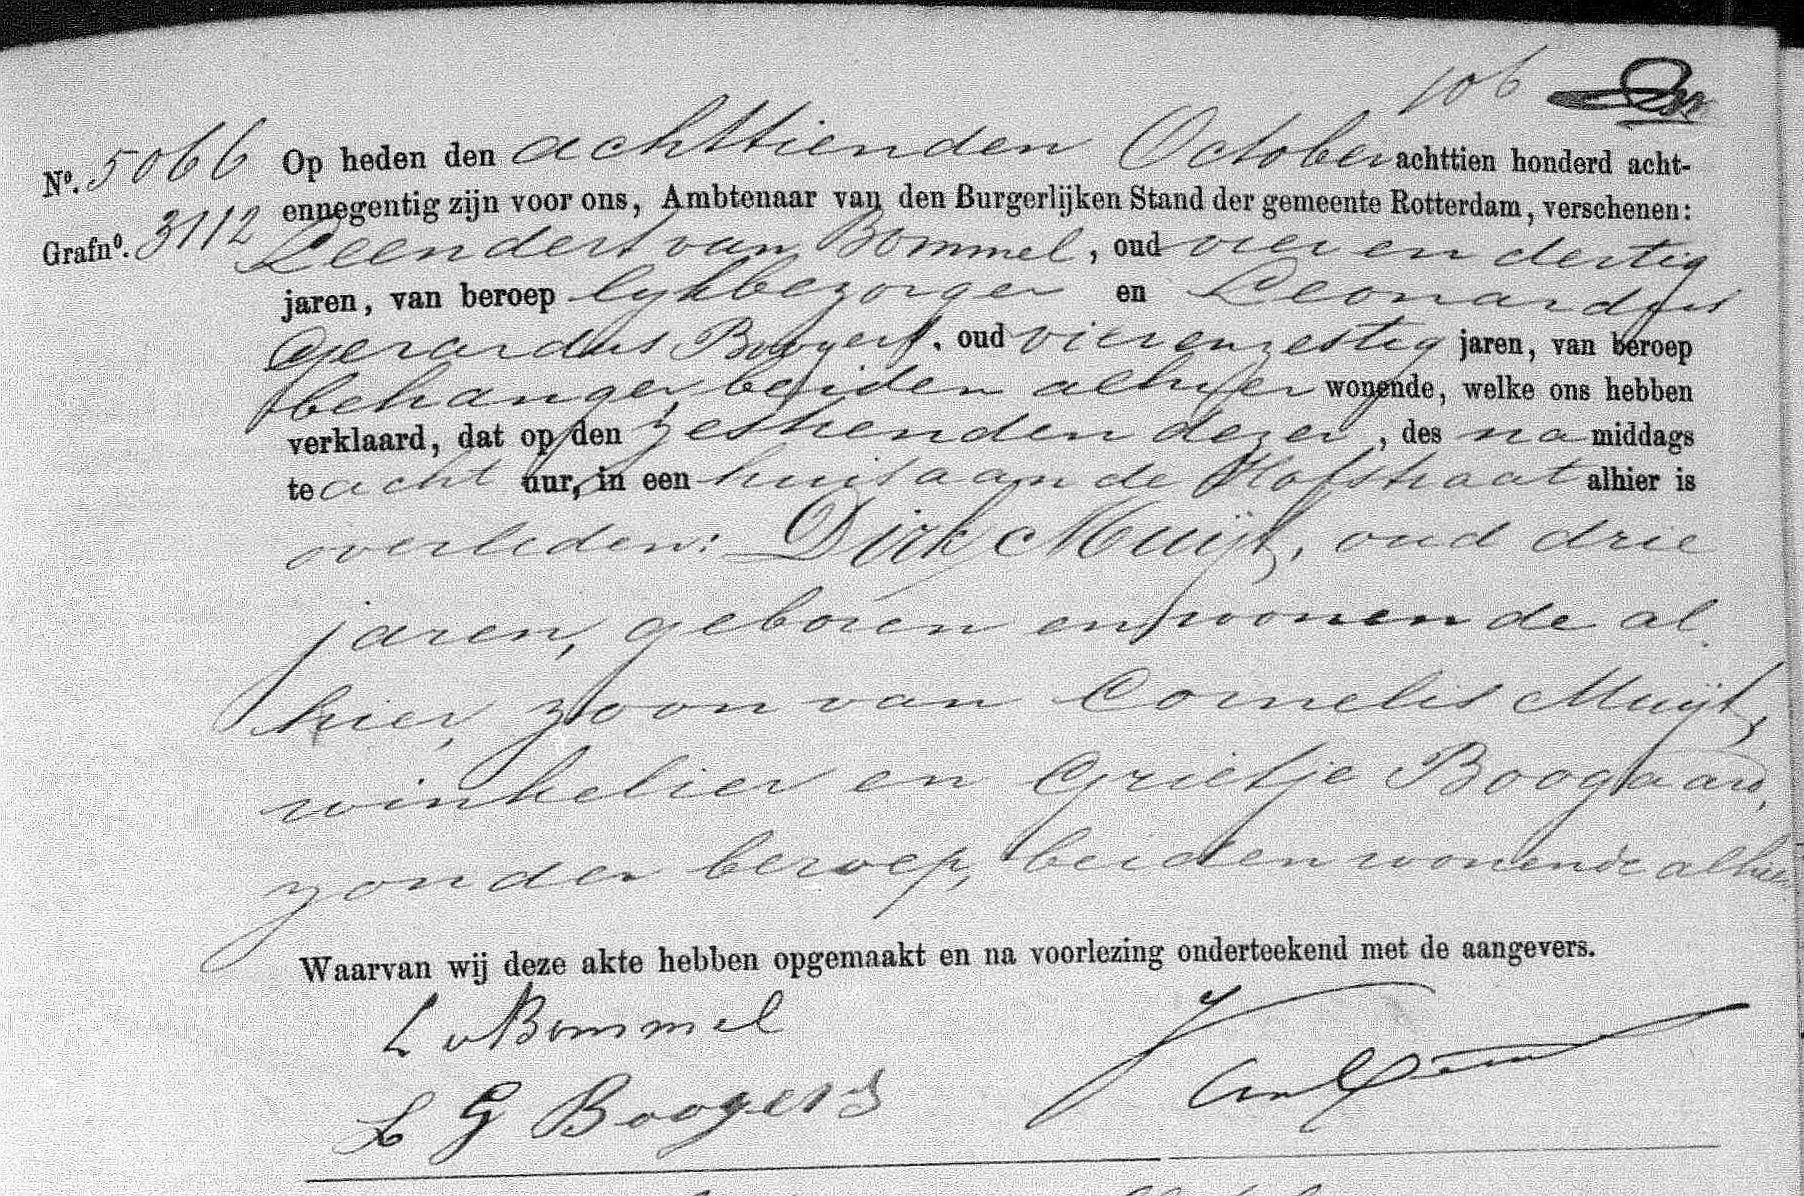 106
Nº. 5066 Op heden den achttienden October achttien honderd acht-
ennegentig zijn voor ons, Ambtenaar van den Burgerlijken Stand der gemeente Rotterdam, verschenen:
Grafnº. 3112 Leendert van Bommel, oud vier en dertig
jaren, van beroep lijkbezorger en Leonardus
Gerardus Boogers, oud vierenzestig jaren, van beroep
behanger, beiden alhier wonende, welke ons hebben
verklaard, dat op den zestienden dezer, des na middags
te acht uur, in een huis aan de Hofstraat alhier is
overleden: Dirk Muijt, oud drie
jaren, geboren en wonende al
hier, zoon van Cornelis Muijt,
winkelier en Grietje Boogaard,
zonder beroep, beiden wonende alhier
Waarvan wij deze akte hebben opgemaakt en na voorlezing onderteekend met de aangevers.
L v Bommel
L G Boogers